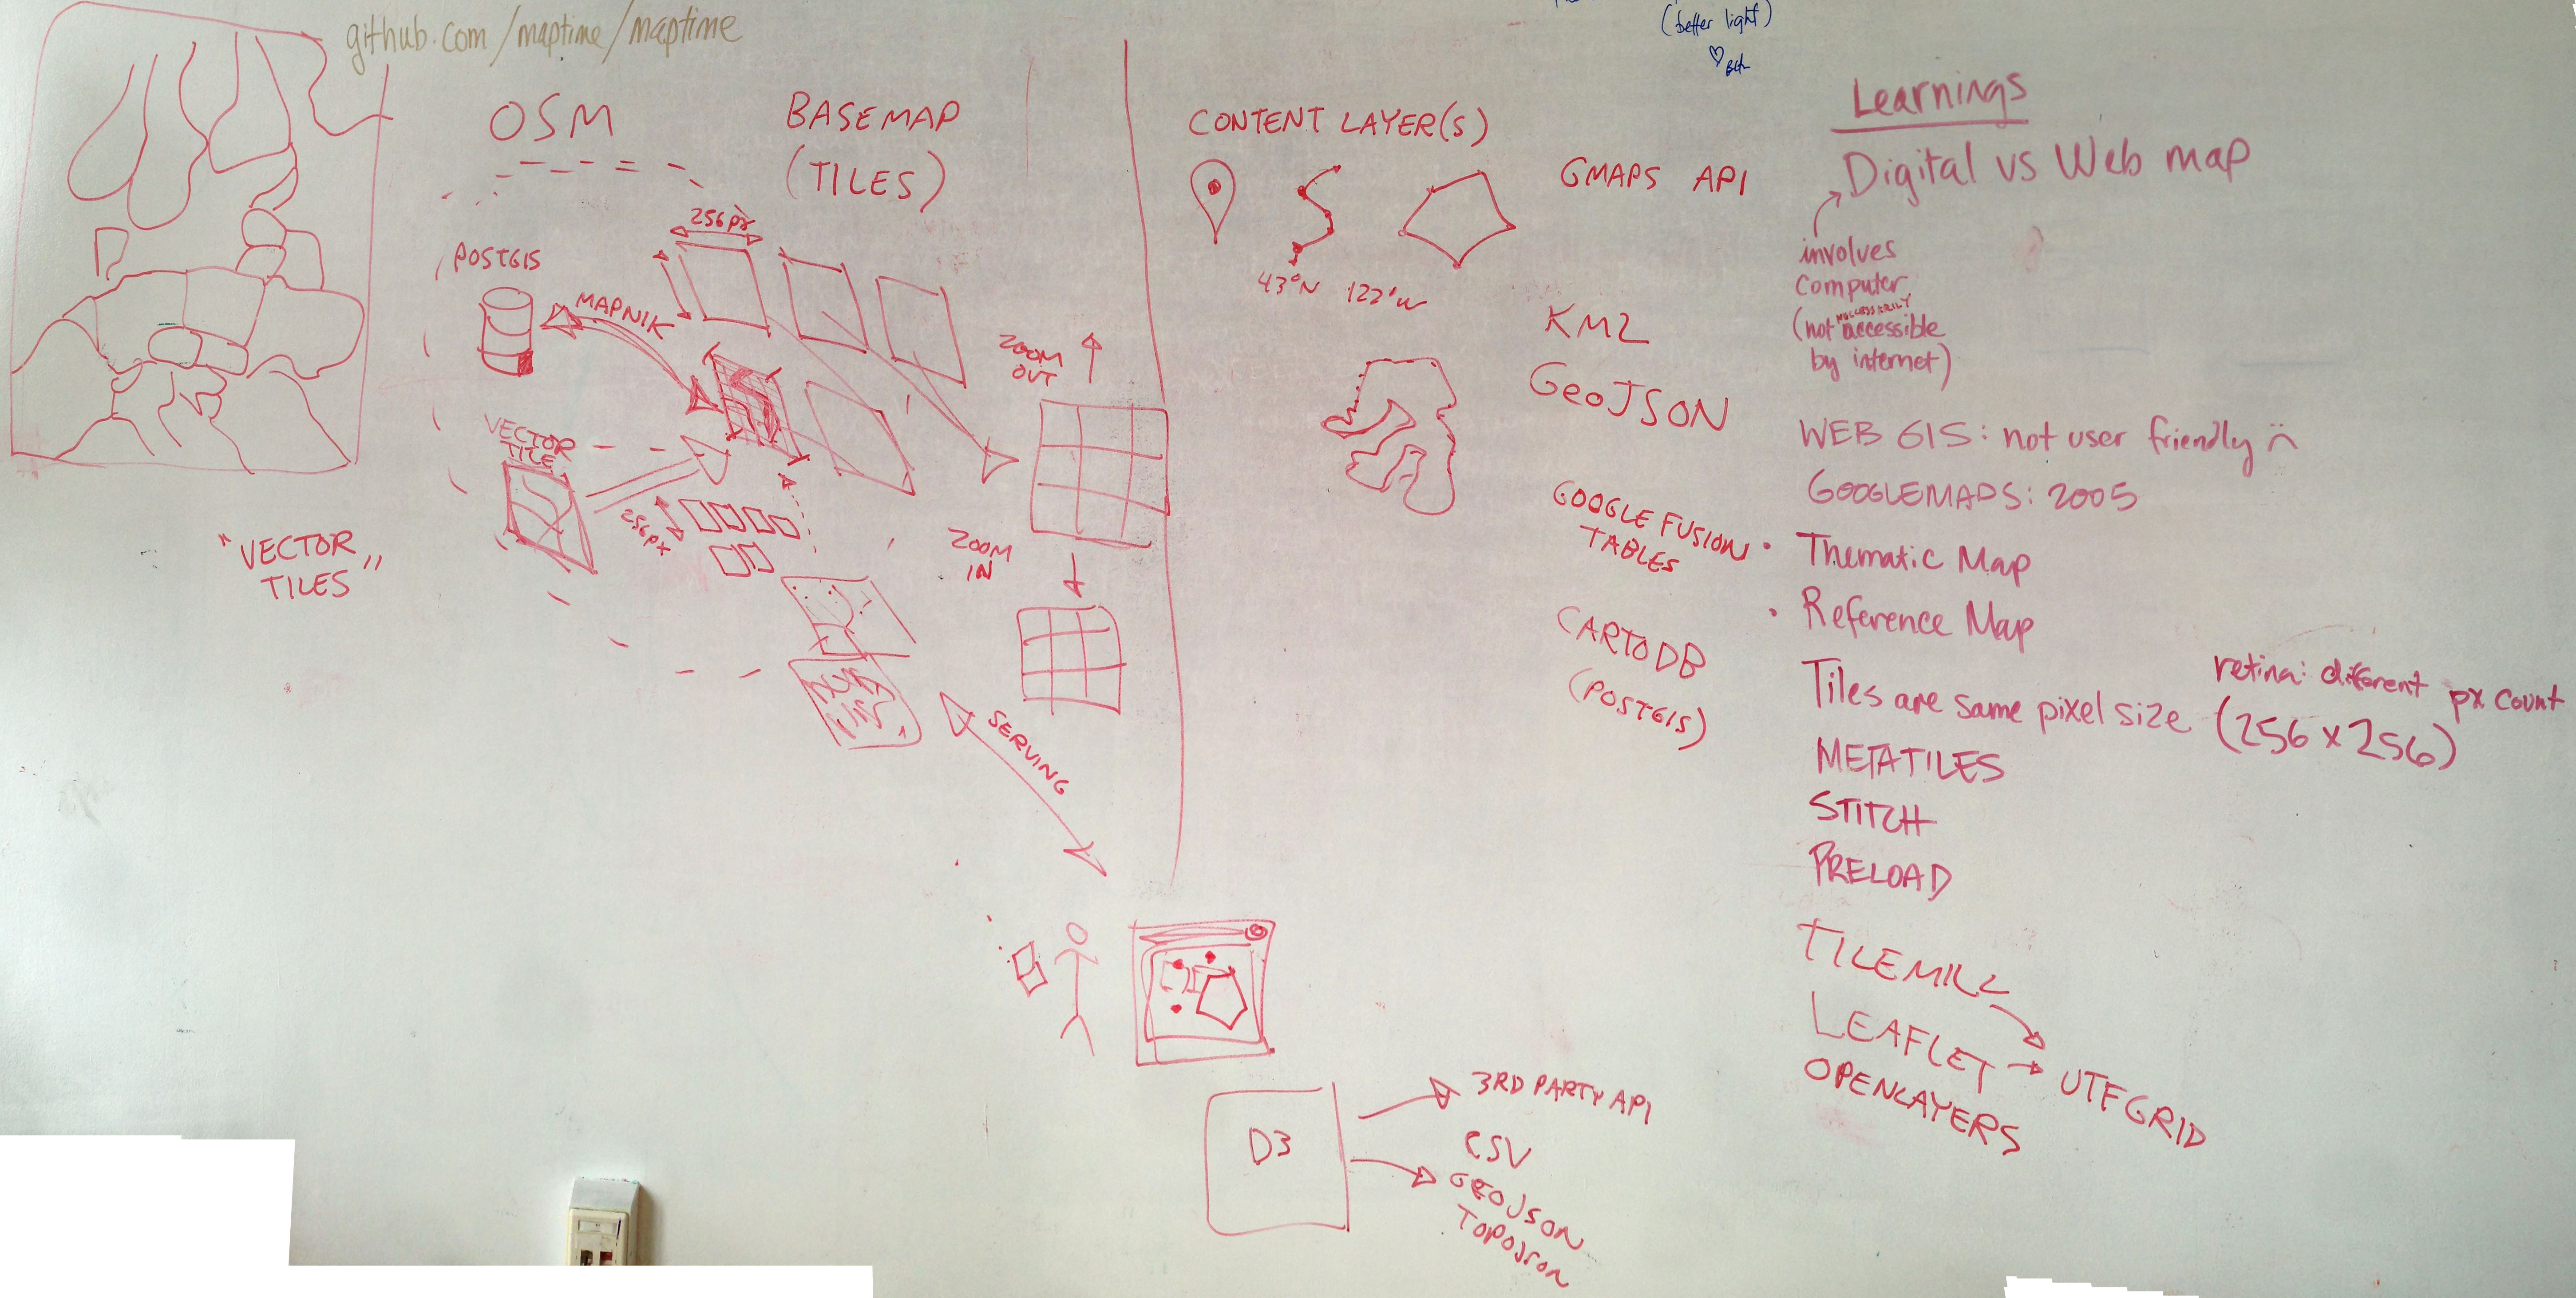 github.com/maptime/maptime
(better light)
♡ Beth
OSM
BASEMAP
(TILES)
256px
POSTGIS
MAPNIK
VECTOR
TILE
256px
ZOOM
OUT
ZOOM
IN
SERVING
"VECTOR
TILES"
CONTENT LAYER(S)
43°N 122°W
GMAPS API
KML
GeoJSON
GOOGLE FUSION
TABLES
CARTODB
(POSTGIS)
D3
3RD PARTY API
CSV
GEOJSON
TOPOJSON
Learnings
Digital vs Web map
involves
Computer
NECCESSARILY
(not accessible
by internet)
WEB GIS: not user friendly :(
GOOGLEMAPS: 2005
• Thematic Map
• Reference Map
retina: different px count
Tiles are same pixel size (256 x 256)
METATILES
STITCH
PRELOAD
TILEMILL
LEAFLET → UTFGRID
OPENLAYERS